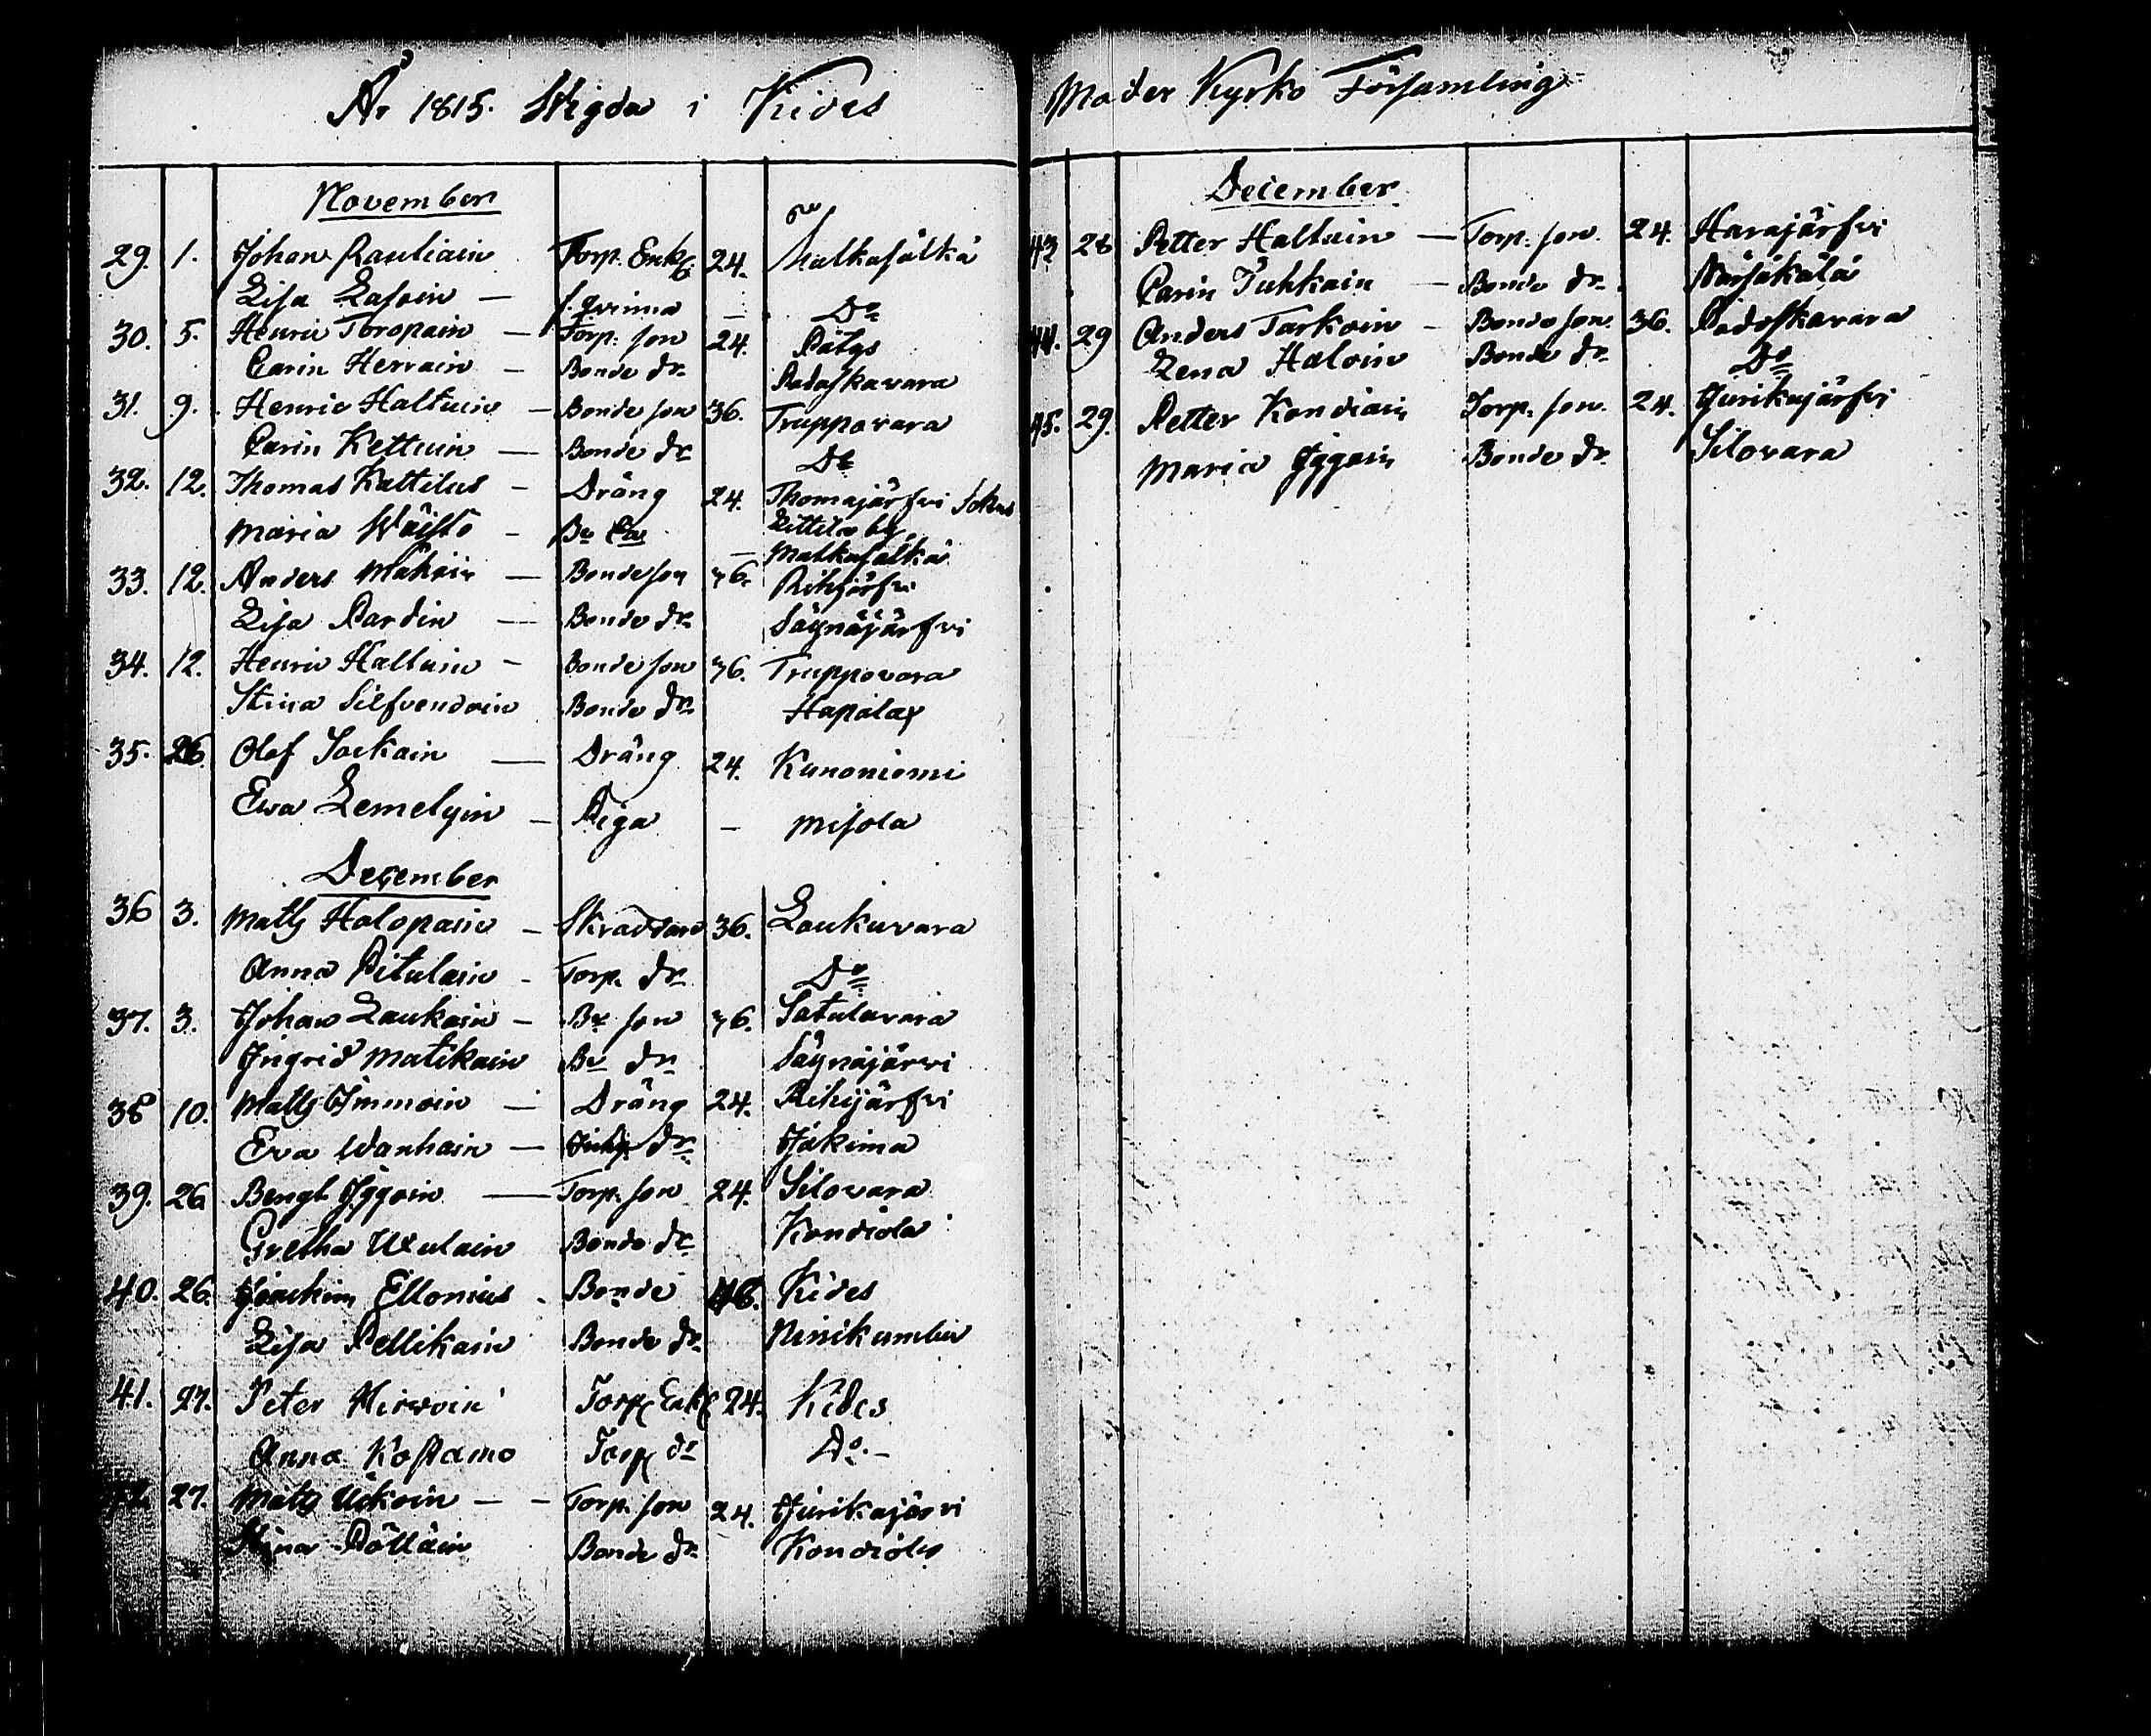 År 1815. Wigda i Kides
November
29. 1. Johan Rauliain Torp. Enkl. 24. Malkasälkä
Lisa Lasoin — s. qvinna — Do
30. 5. Henric Toropain — Torp. son 24. Pätys
Carin Herrain — Bonde dr. Podoskavara
31. 9. Henric Haltuin — Bonde son 36. Truppovara
Carin Kettuin — Bonde dr. Do
32. 12. Thomas Kattilus — Dräng 24. Thomajärfvi Sokn
Kittilä by
Maria Wäistö — Be — Malkasälkä
33. 12. Anders Mähöin — Bonde son 36. Rihijärfvi
Lisa Pardin — Bonde dr. Säynäjärfvi
34. 12. Henric Haltuin — Bonde son 36. Truppovara
Stina Silfvendoin Bonde dr. Hapalax
35. 26. Olof Jockain — Dräng 24. Kunoniemi
Ewa Lemelyin — Piga — Misola
December
36 3. Matts Holopain — Skräddare 36. Loukuvara
Anna Pitulain — Torp. dr. Do
37. 3. Johan Laukain — Be son 36. Satulavara
Ingrid Matikain Be dr. Säynäjärvi
38 10. Matts Immoin — Dräng 24. Rihijärfvi
Eva Wanhain — dr. Jakima
39. 26 Bengt Iggoin — Torp. son 24. Silovara
Gretha Ululain Bonde dr. Kondiola
40. 26. Joachim Ellonius - Bonde 48. Kides
Lisa Pellikain Bonde dr. Niinikumbu
41. 27. Peter Hirwoin Torp Enkl 24. Kides
Anna Kostamo Torp dr Do. -
42. 27. Matts Uckoin — - Torp. son 24. Jurikajärvi
Stina Pölläin Bonde dr. Kondiola
Moder Kyrko Församling
December
43 28 Petter Haltuin — Torp. son. 24. Harajärfvi
Carin Tuhkain — Bonde dr. Närsäkälä
44. 29 Anders Tarkoin - Bonde son. 36. Podoskavara
Lena Haloin Bonde dr. Do
45. 29. Petter Kondiain Torp. son. 24. Jurikajärfvi
Maria Iggoin Bonde dr. Silovara